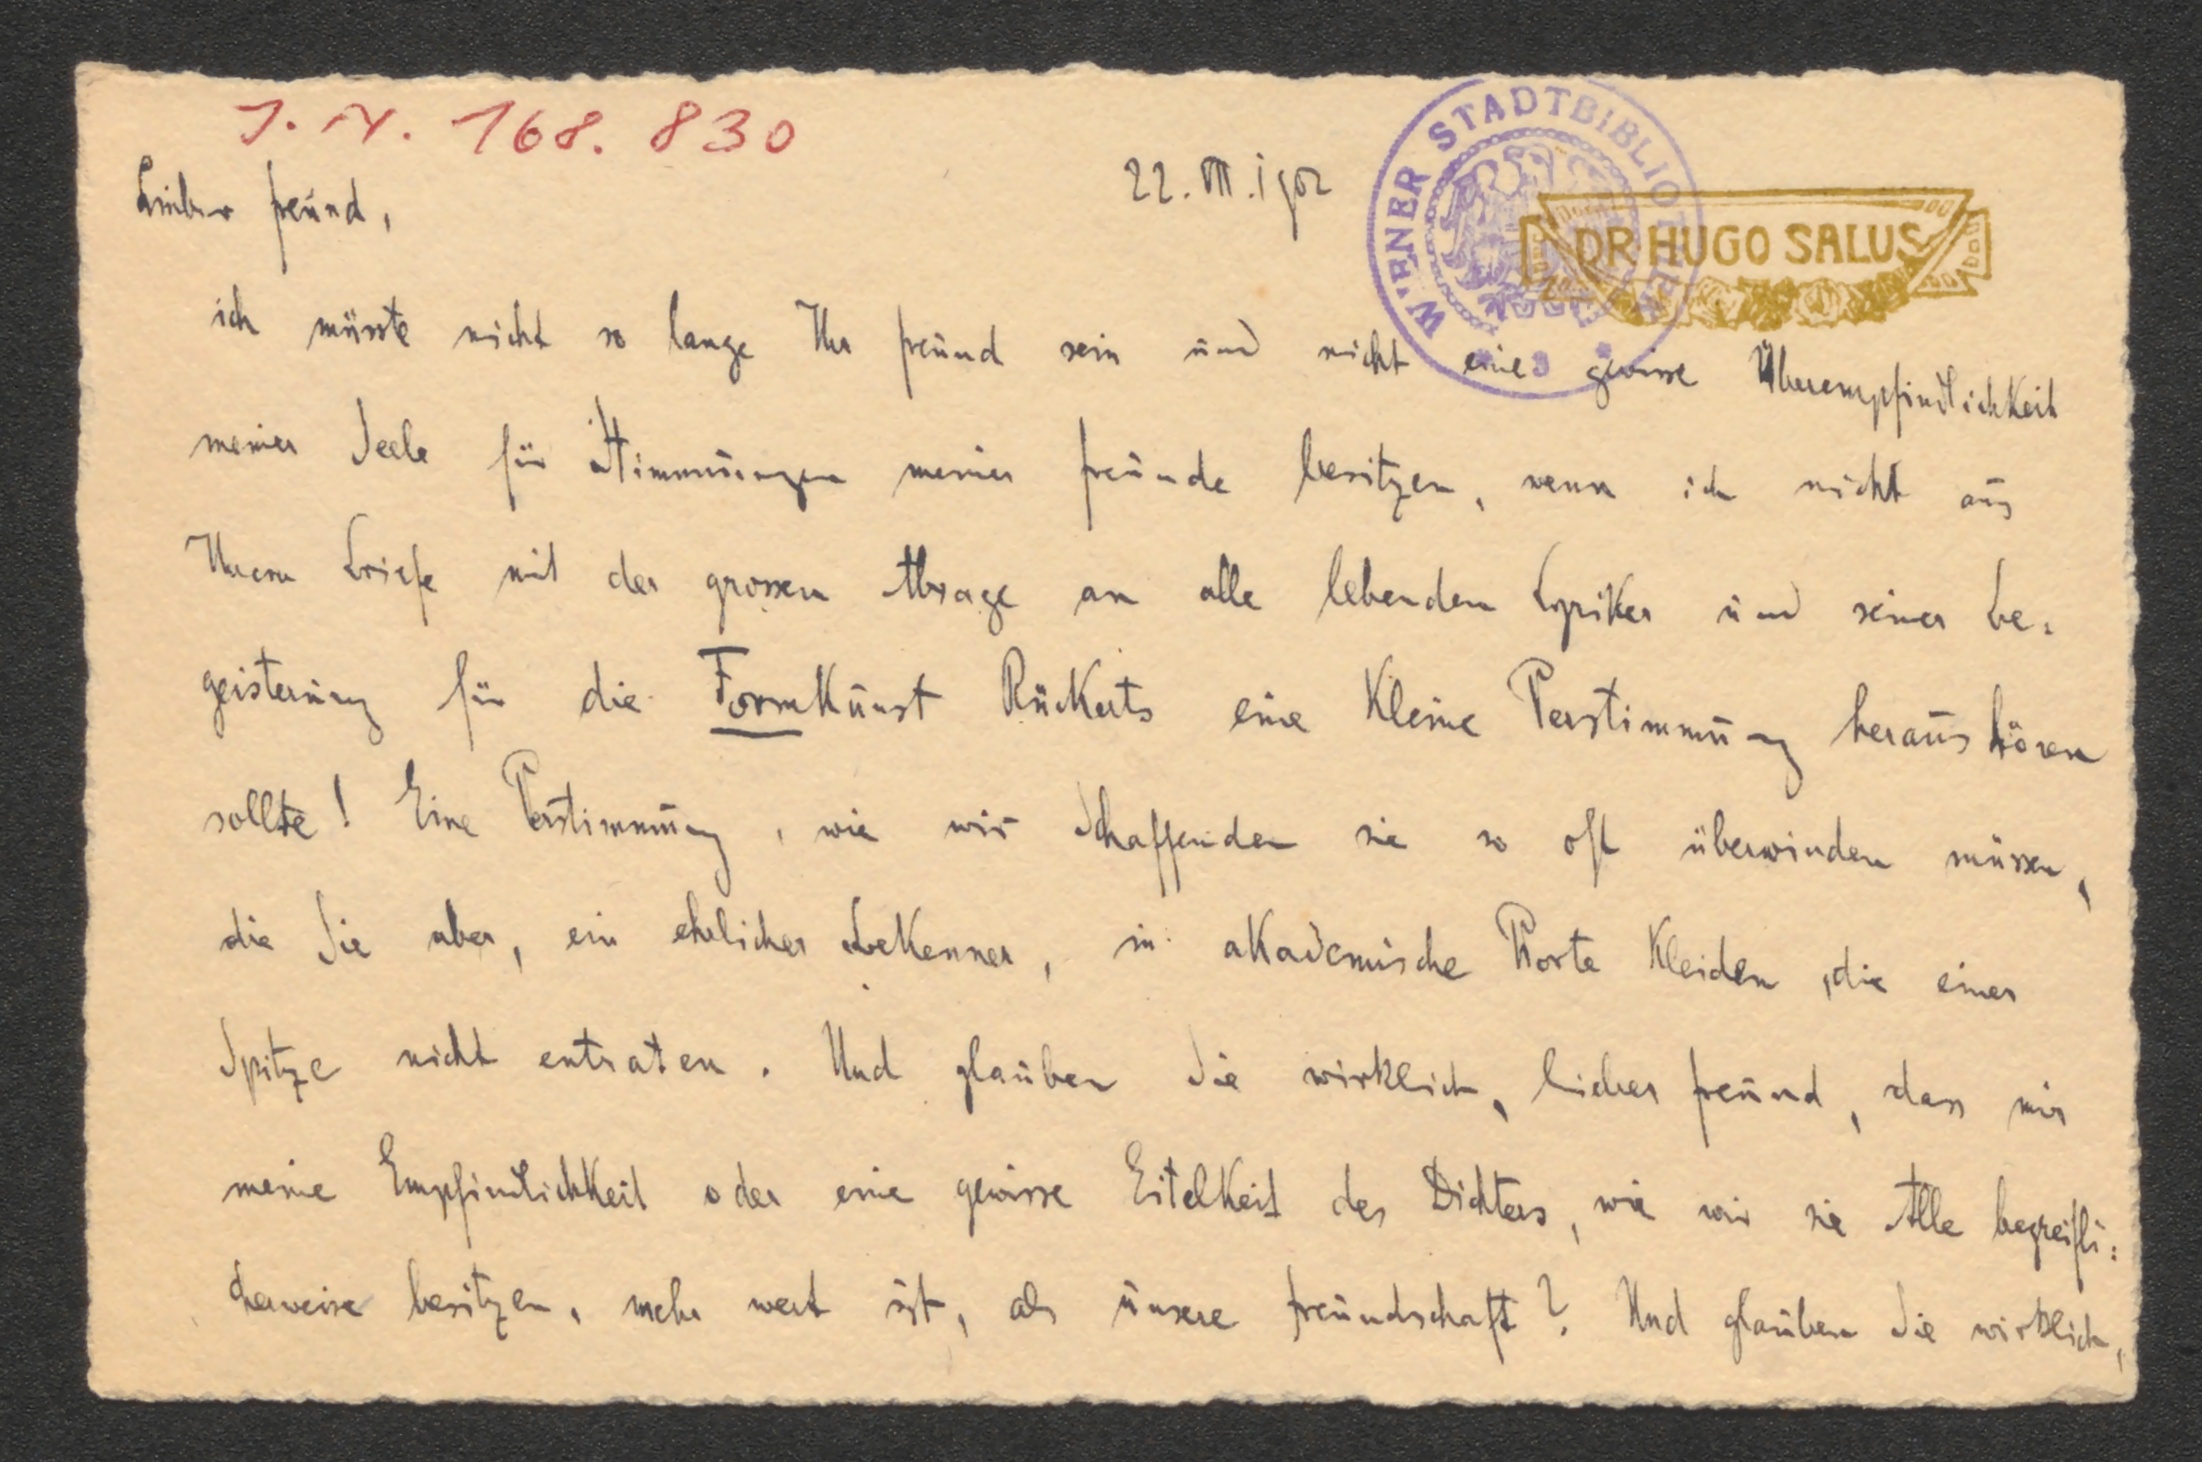 J. N. 168.830
WIENER STADTBIBLIOTHEK
Lieber Freund,
22. VII. 1902
DR HUGO SALUS
ich müsste nicht so lange Ihr Freund sein und nicht eine gewisse Überempfindlichkeit
meiner Seele für Stimmungen meiner Freunde besitzen, wenn ich nicht aus
Ihrem Briefe mit der grossen Absage an alle lebenden Lyriker und seiner Be-
geisterung für die Formkunst Rückerts eine kleine Verstimmung heraushören
sollte! Eine Verstimmung, wie wir Schaffenden sie so oft überwinden müssen,
die Sie aber, ein ehrlicher Bekenner, in akademische Worte kleiden, die einer
Spitze nicht entraten. Und glauben Sie wirklich, lieber Freund, dass mir
meine Empfindlichkeit oder eine gewisse Eitelkeit des Dichters, wie wir sie Alle begreifli-
cherweise besitzen, mehr wert ist, als unsere Freundschaft? Und glauben Sie wirklich,